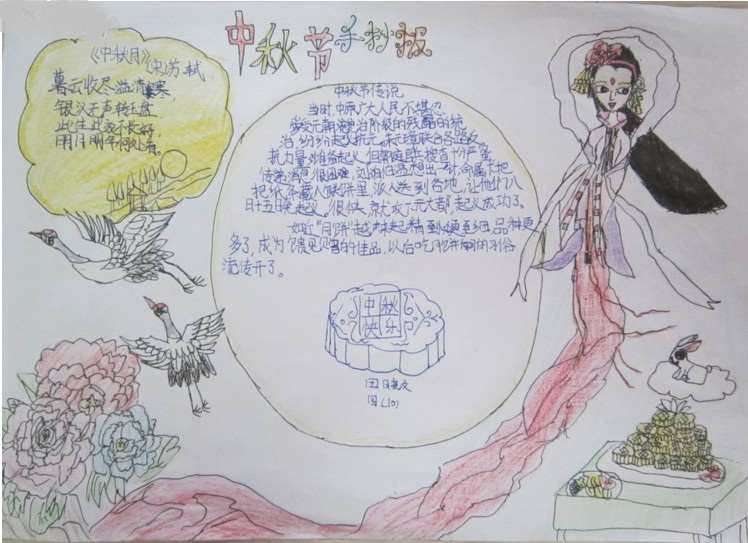 中秋节手抄报
《中秋月》宋苏轼
暮云收尽溢清寒,
银汉无声转玉盘
此生此夜不长好,
明月明年何处看。
中秋节传说
当时,中原广大人民不堪忍
受元朝统治阶级的残酷的统
治,纷纷起义抗元。朱元璋联合各路反
抗力量准备起义。但朝庭官兵搜查十分严密,
传递消息很困难。刘伯温想出一计,命属下把
把纸条藏入饼子里派人送到各地,让他们八
月十五晚起义,很快就攻下元大都起义成功了。
如近"月饼"越
品种更
多了,成为馈
的佳品,以后吃月饼
俗
流传开了。
中秋
快乐
田
四(10)